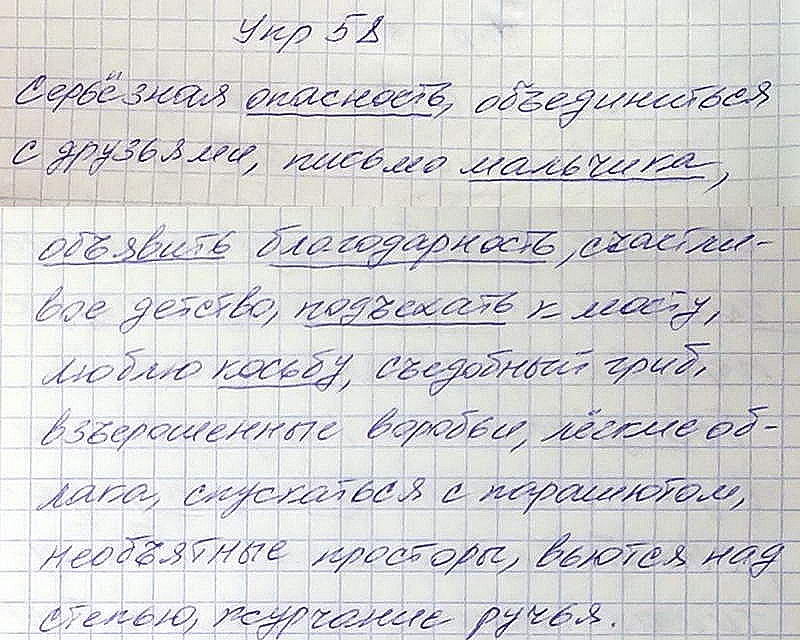 Упр 58
Серьёзная опасность, объединиться
с друзьями, письмо мальчика,
объявить благодарность, счастли-
вое детство, подъехать к мосту,
люблю косьбу, съедобный гриб,
взъерошенные воробьи, лёгкие об-
лака, спускаться с парашютом,
необъятные просторы, вьются над
степью, журчание ручья.